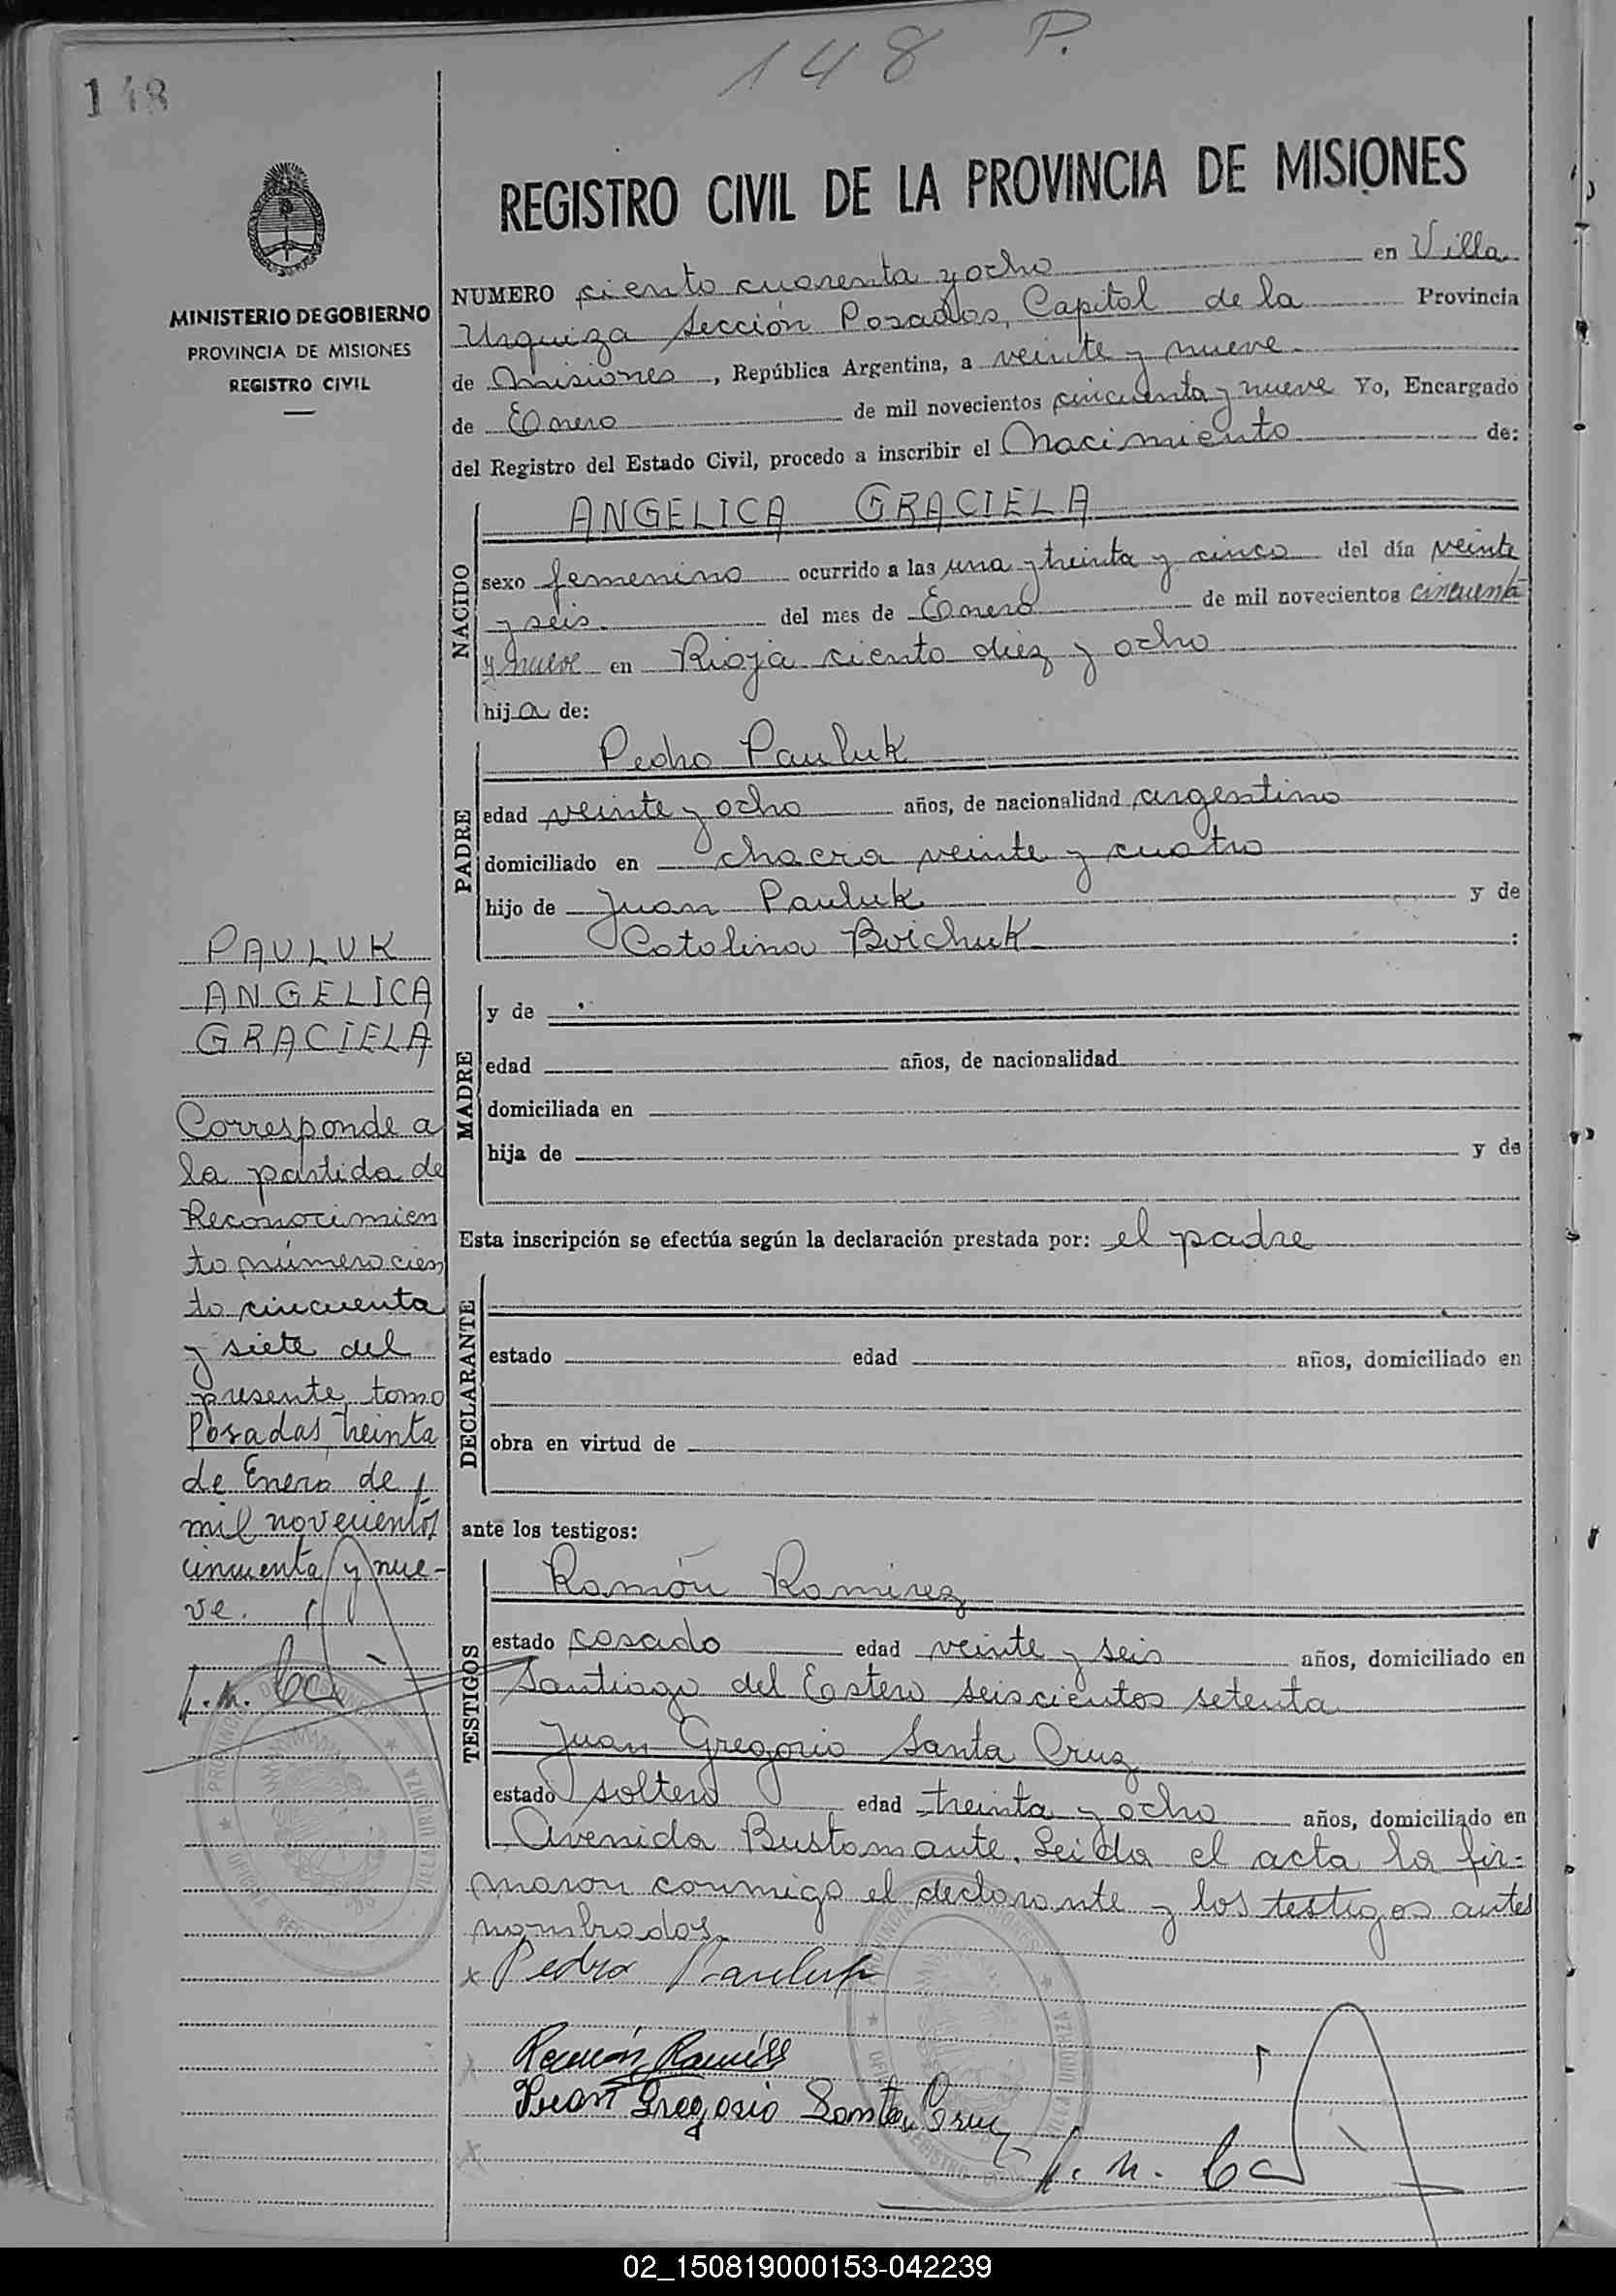 148 P.
148
REGISTRO CIVIL DE LA PROVINCIA DE MISIONES
MINISTERIO DE GOBIERNO
PROVINCIA DE MISIONES
REGISTRO CIVIL
NUMERO ciento cuarenta y ocho en Villa
Urquiza Sección Posadas, Capital de la Provincia
de Misiones, República Argentina, a veinte y nueve
de Enero de mil novecientos cincuenta y nueve Yo, Encargado
del Registro del Estado Civil, procedo a inscribir el Nacimiento de:
NACIDO
ANGELICA GRACIELA
sexo femenino ocurrido a las una y treinta y cinco del día veinte
y seis del mes de Enero de mil novecientos cincuenta
y nueve en Rioja ciento diez y ocho
hija de:
PADRE
Pedro Pauluk
edad veinte y ocho años, de nacionalidad argentino
domiciliado en chacra veinte y cuatro
hijo de Juan Pauluk y de
Catolina Boichuk :
MADRE
y de
edad años, de nacionalidad
domiciliada en
hija de y de
Esta inscripción se efectúa según la declaración prestada por: el padre
DECLARANTE
estado edad años, domiciliado en
obra en virtud de
ante los testigos:
TESTIGOS
Ramón Ramirez
estado casado edad veinte y seis años, domiciliado en
Santiago del Estero seiscientos setenta
Juan Gregorio Santa Cruz
estado soltero edad treinta y ocho años, domiciliado en
Avenida Bustamante. Leida el acta la fir=
maron conmigo el declarante y los testigos antes
nombrados.
x Pedro Pauluk
Ramón Ramírez
Juan Gregorio Santa Cruz
PAULUK
ANGELICA
GRACIELA
Corresponde a
la partida de
Reconocimien
to número cien
to cincuenta
y siete del
presente tomo
Posadas, treinta
de Enero de
mil novecientos
cincuenta y nue-
ve.
02_150819000153-042239